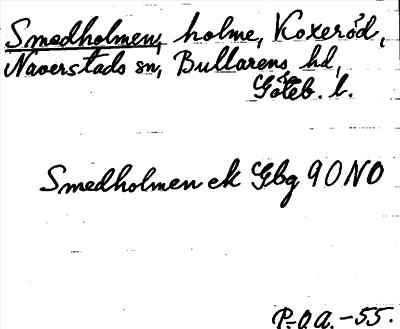 Smedholmen, holme, Koxeröd,
Naverstads sn, Bullarens hd,
Göteb. l.
Smedholmen ek Gbg 90 NO
P.-O.A. -55.